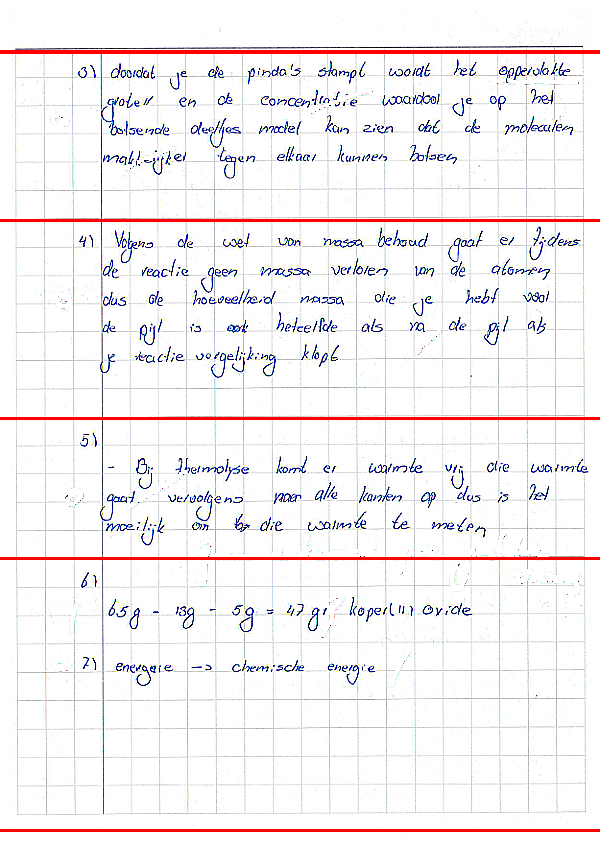 3) doordat je de pinda's stampt wordt het oppervlakte
groter en de concentratie waardoor je op het
botsende deeltjes model kan zien dat de moleculen
makkelijker tegen elkaar kunnen botsen
4) Volgens de wet van massa behoud gaat er tijdens
de reactie geen massa verloren van de atomen
dus de hoeveelheid massa die je hebt voor
de pijl is ook hetzelfde als na de pijl als
je reactie vergelijking klopt
5)
- Bij thermolyse komt er warmte vrij die warmte
gaat vervolgens naar alle kanten op dus is het
moeilijk om die warmte te meten
6)
65g - 13g - 5g = 47 gr koper(II) oxide
7) energie -> chemische energie